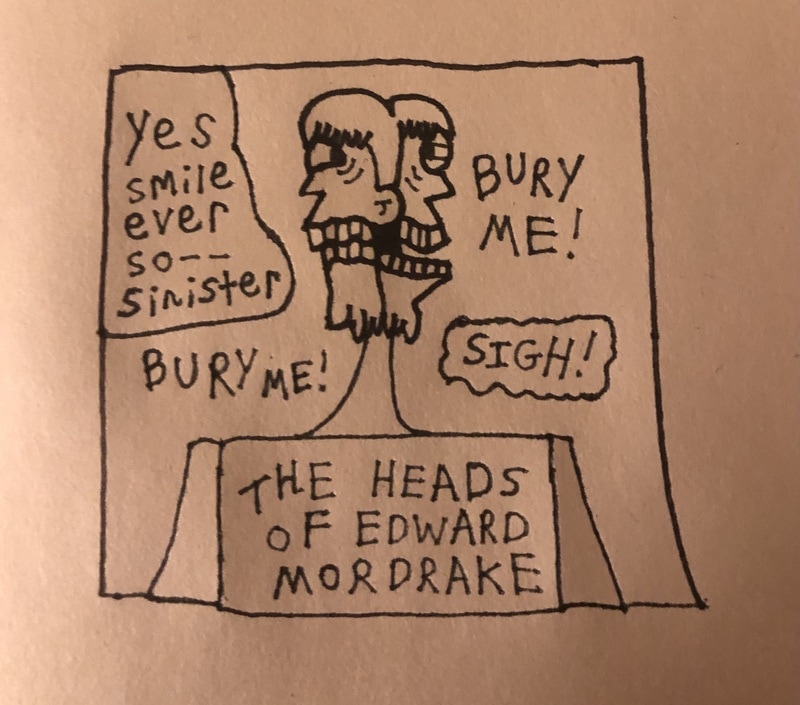 yes
smile
ever
so--
sinister
BURY
ME!
BURY ME!
SIGH!
THE HEADS
OF EDWARD
MORDRAKE